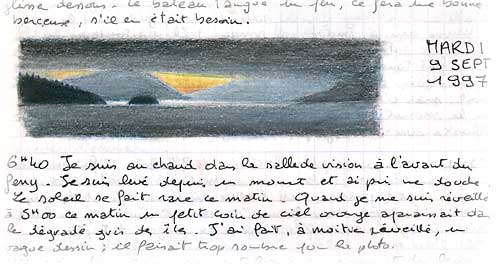 glisse dessous. Le bateau tangue un peu, ce sera une bonne
berceuse, s'il en était besoin.
MARDI
9 SEPT
1997
6H40 Je suis au chaud dans la salle de vision à l'avant du
ferry. Je suis levé depuis un moment et ai pris une douche.
Le soleil se fait rare ce matin. Quand je me suis réveillé
à 5H00 ce matin un petit coin de ciel orange apparaissait dans
le dégradé gris des îles. J'ai fait, à moitié réveillé, un
vague dessin ; il faisait trop sombre pour la photo.